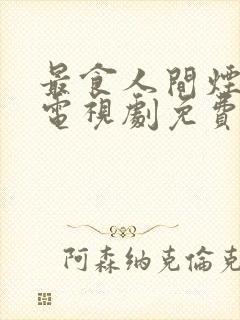 最食人間煙
電視劇免費
阿森納克倫克